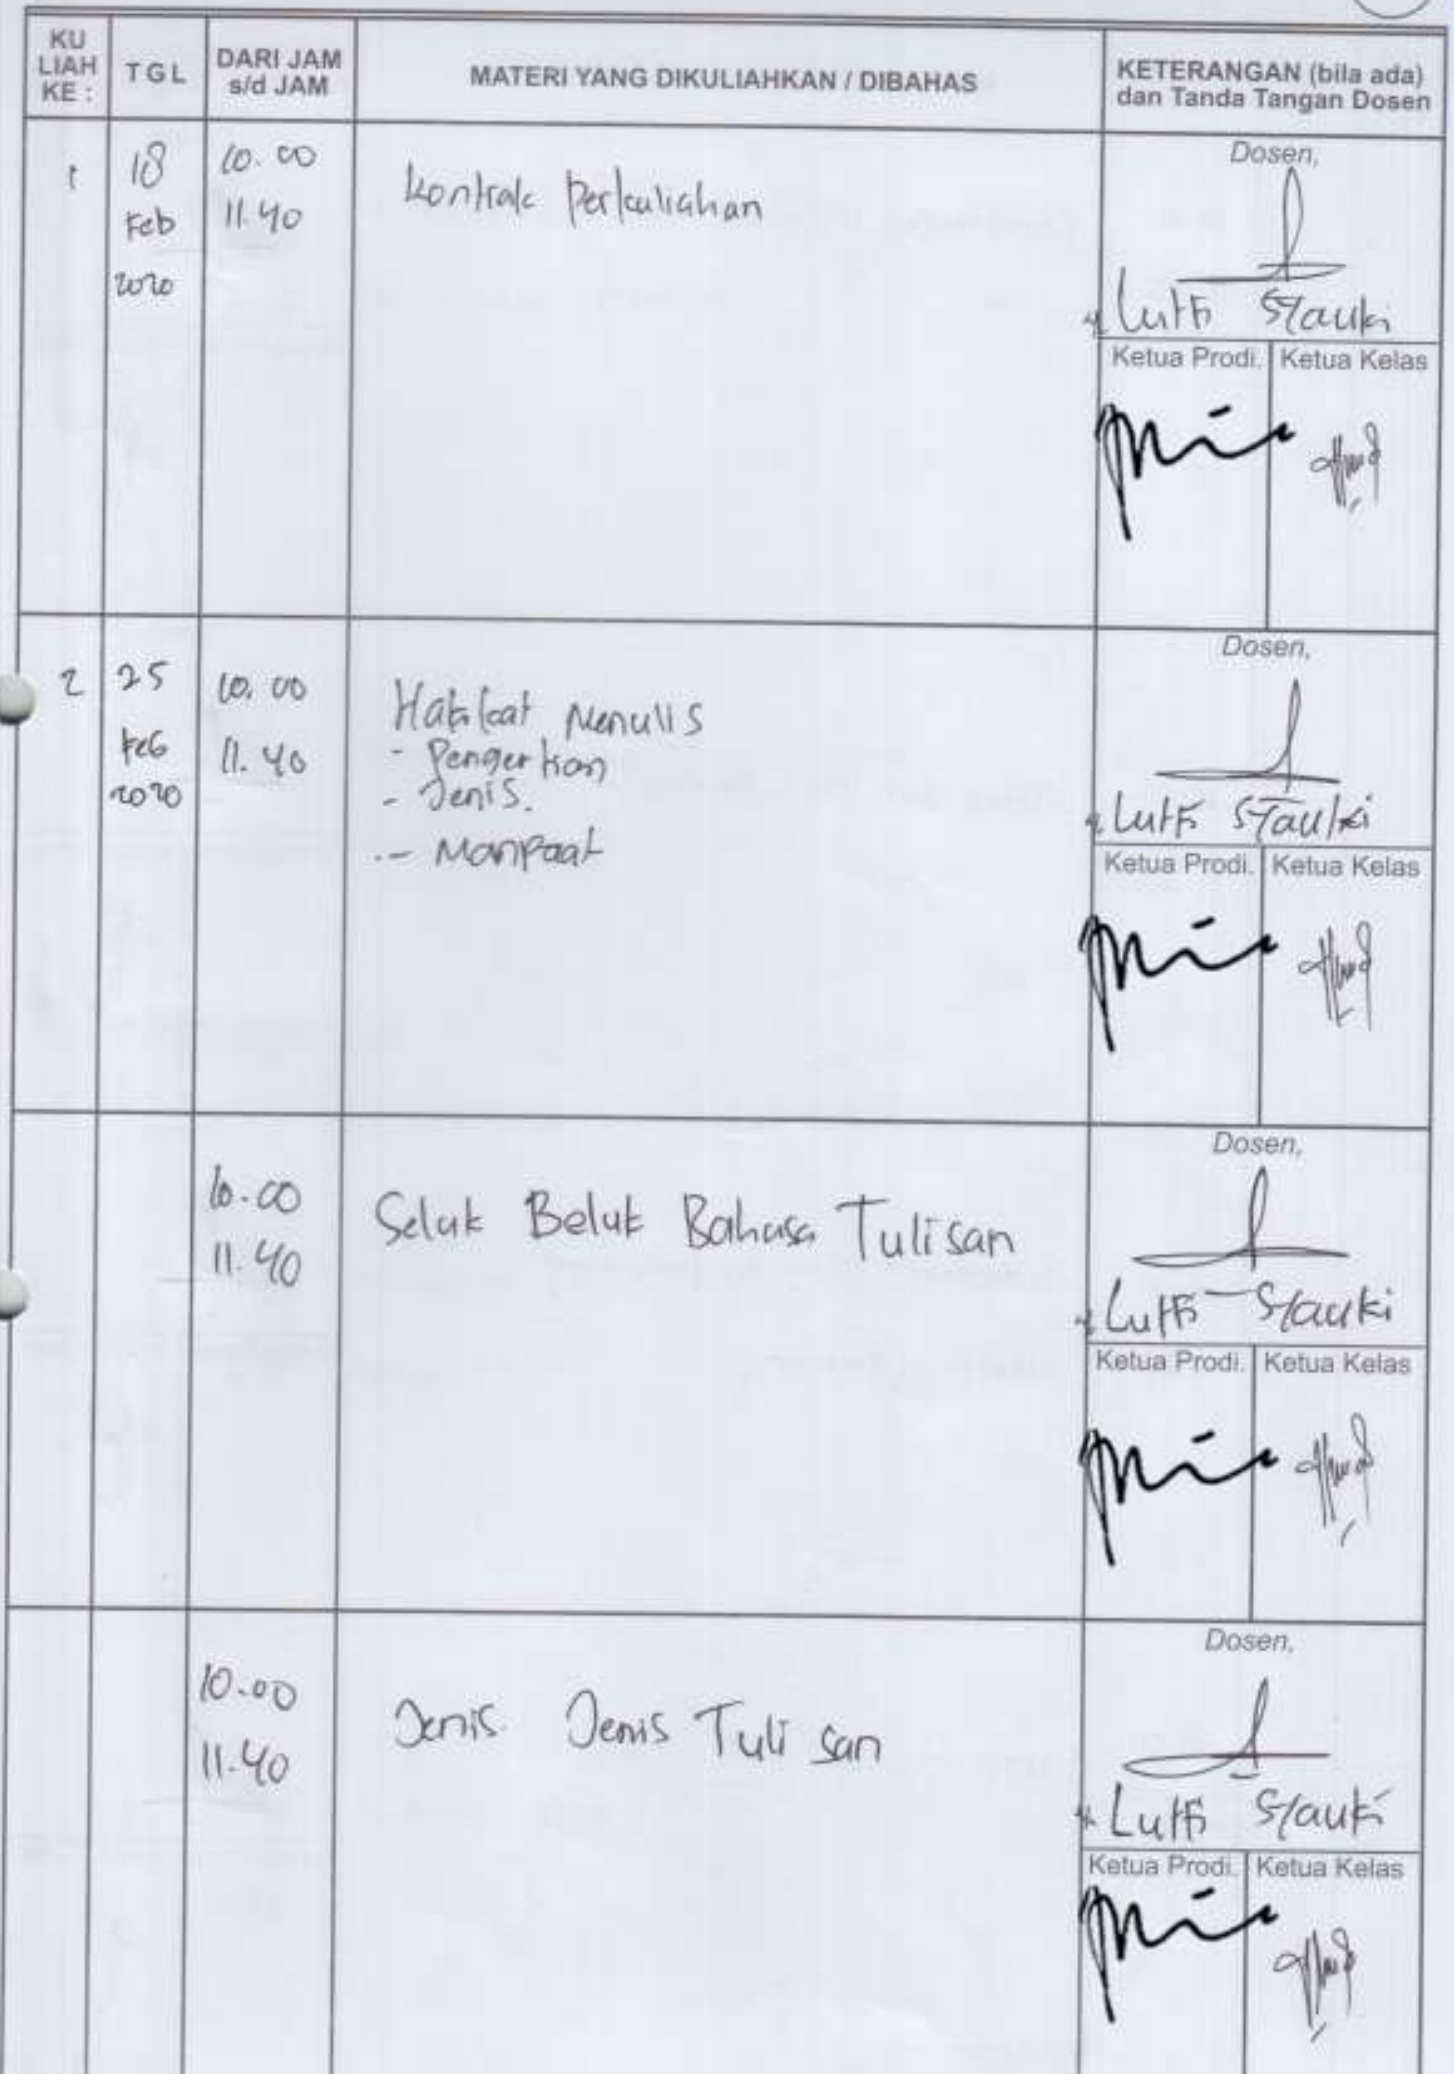 KU LIAH KE : TGL DARI JAM s/d JAM MATERI YANG DIKULIAHKAN / DIBAHAS KETERANGAN (bila ada) dan Tanda Tangan Dosen
1 18 Feb 2020 10.00 11.40 Kontrak Perkuliahan
Dosen,
Lutfi Syauki
Ketua Prodi. Ketua Kelas
2 25 Feb 2020 10.00 11.40 Hakikat Menulis
- Pengertian
- Jenis.
- Manpaat
Dosen,
Lutfi Syauki
Ketua Prodi. Ketua Kelas
10.00 11.40 Seluk Beluk Bahasa Tulisan
Dosen,
Lutfi Syauki
Ketua Prodi. Ketua Kelas
10.00 11.40 Jenis Jenis Tulisan
Dosen,
Lutfi Syauki
Ketua Prodi. Ketua Kelas